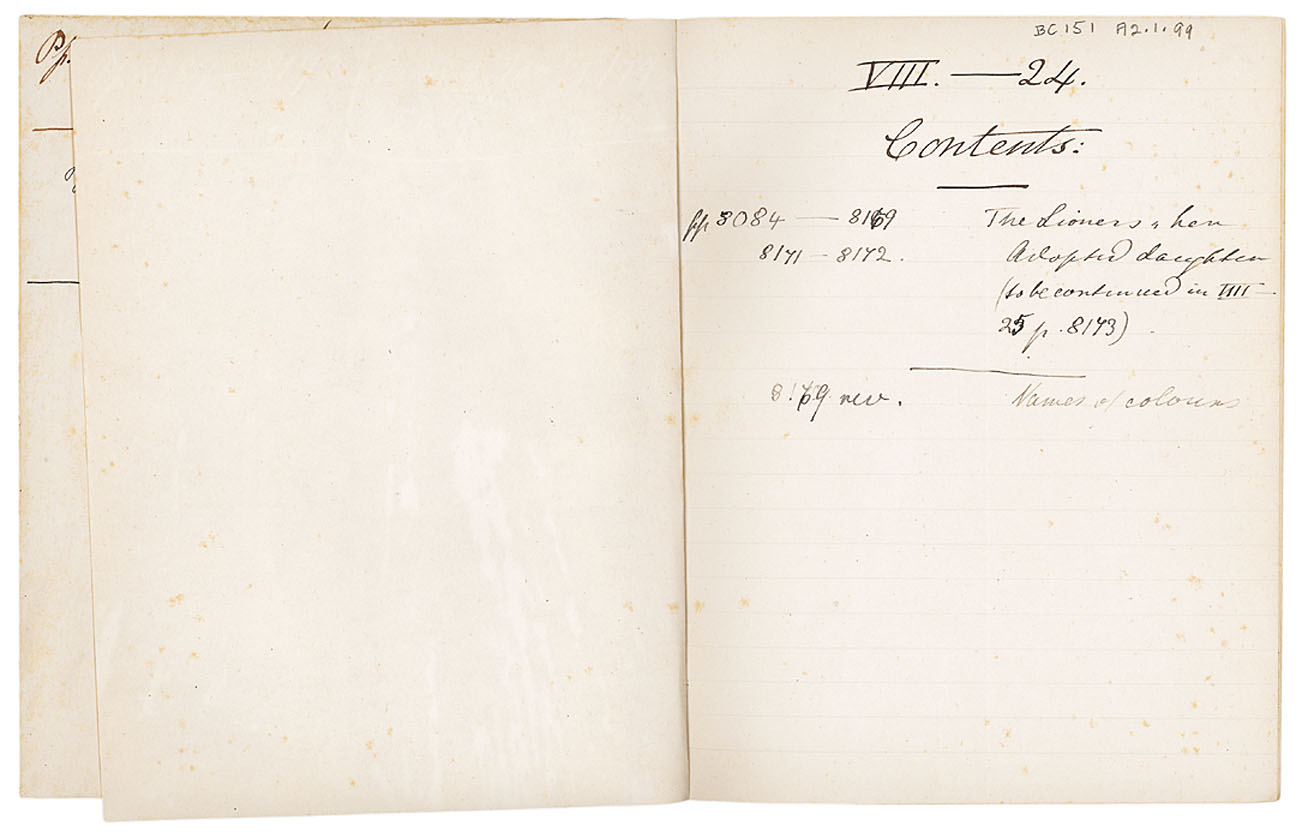 Pp.
BC 151 A2.1.99
VIII. — 24.
Contents:
pp 8084 — 8169 The Lioness, her
8171 – 8172. Adopted daughter
(to be continued in VIII –
25 p. 8173)
8169 rev. Names of colours